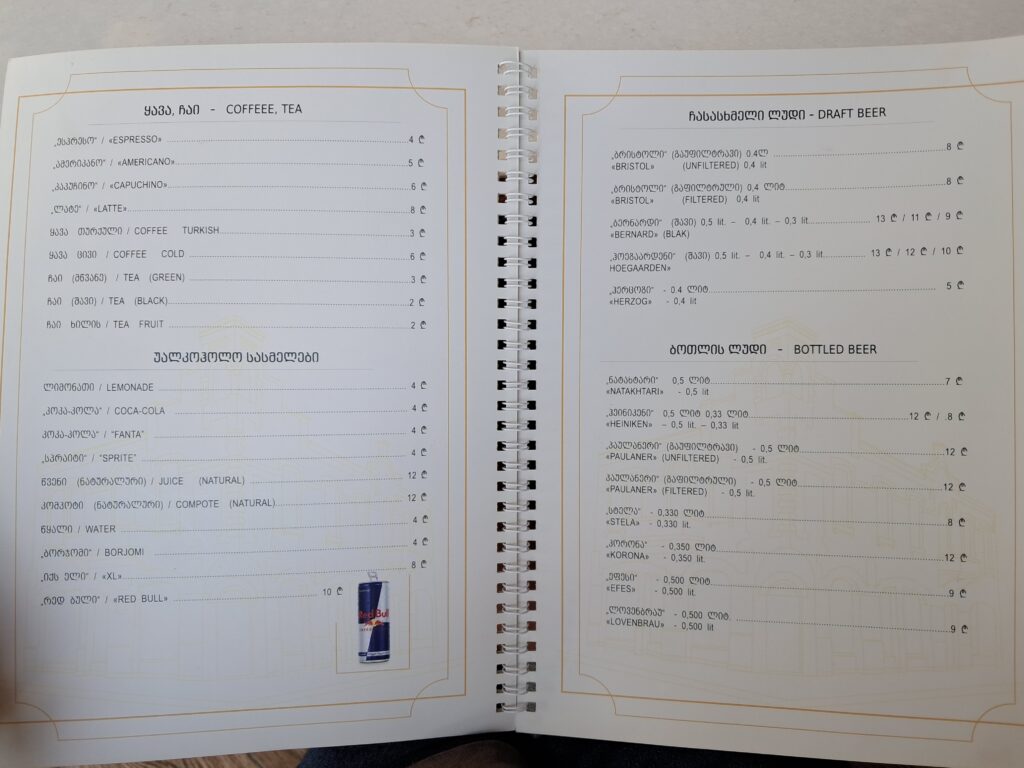 ყავა, ჩაი - COFFEEE, TEA
„ესპრესო“ / «ESPRESSO» 4 ₾
„ამერიკანო“ / «AMERICANO» 5 ₾
„კაპუჩინო“ / «CAPUCHINO» 6 ₾
„ლატე“ / «LATTE» 8 ₾
ყავა თურქული / COFFEE TURKISH 3 ₾
ყავა ცივი / COFFEE COLD 6 ₾
ჩაი (მწვანე) / TEA (GREEN) 3 ₾
ჩაი (შავი) / TEA (BLACK) 2 ₾
ჩაი ხილის / TEA FRUIT 2 ₾
უალკოჰოლო სასმელები
ლიმონათი / LEMONADE 4 ₾
„კოკა-კოლა“ / COCA-COLA 4 ₾
კოკა-კოლა“ / “FANTA” 4 ₾
„სპრაიტი“ / “SPRITE” 4 ₾
წვენი (ნატურალური) / JUICE (NATURAL) 12 ₾
კომპოტი (ნატურალური) / COMPOTE (NATURAL) 12 ₾
წყალი / WATER 4 ₾
„ბორჯომი“ / BORJOMI 4 ₾
„იქს ელი“ / «XL» 8 ₾
„რედ ბული“ / «RED BULL» 10 ₾
Red Bull
ჩასასხმელი ლუდი - DRAFT BEER
„ბრისტოლი“ (გაუფილტრავი) 0.4ლ 8 ₾
«BRISTOL» (UNFILTERED) 0,4 lit
„ბრისტოლი“ (გაფილტრული) 0,4 ლიტ 8 ₾
«BRISTOL» (FILTERED) 0,4 lit
„ბერნარდი“ (შავი) 0,5 lit. – 0,4 lit. – 0,3 lit. 13 ₾ / 11 ₾ / 9 ₾
«BERNARD» (BLAK)
„ჰოეგაარდენი“ (შავი) 0,5 lit. – 0,4 lit. – 0,3 lit. 13 ₾ / 12 ₾ / 10 ₾
HOEGAARDEN»
„ჰერცოგი“ - 0.4 ლიტ 5 ₾
«HERZOG» - 0,4 lit
ბოთლის ლუდი - BOTTLED BEER
„ნატახტარი“ 0,5 ლიტ 7 ₾
«NATAKHTARI» - 0,5 lit
„ჰეინიკენი“ 0,5 ლიტ 0,33 ლიტ 12 ₾ / .8 ₾
«HEINIKEN» – 0,5 lit. – 0,33 lit
„პაულანერი“ (გაუფილტრავი) - 0,5 ლიტ. 12 ₾
«PAULANER» (UNFILTERED) - 0,5 lit.
პაულანერი“ (გაფილტრული) - 0,5 ლიტ. 12 ₾
«PAULANER» (FILTERED) - 0,5 lit.
„სტელა“ - 0,330 ლიტ 8 ₾
«STELA» - 0,330 lit.
„კორონა“ - 0,350 ლიტ 12 ₾
«KORONA» - 0,350 lit.
„ეფესი“ - 0,500 ლიტ 9 ₾
«EFES» - 0,500 lit.
„ლოვენბრაუ“ - 0,500 ლიტ. 9 ₾
«LOVENBRAU» - 0,500 lit